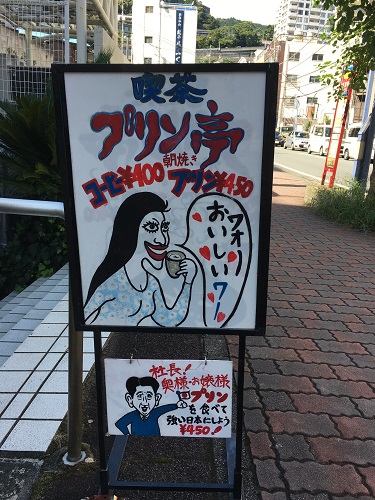 喫茶
プリン亭
朝焼き
コーヒー¥400 プリン¥450
ワォー
おいしいワー
社長!
奥様・お嬢様
プリン
を食べて
強い日本にしよう
¥450!